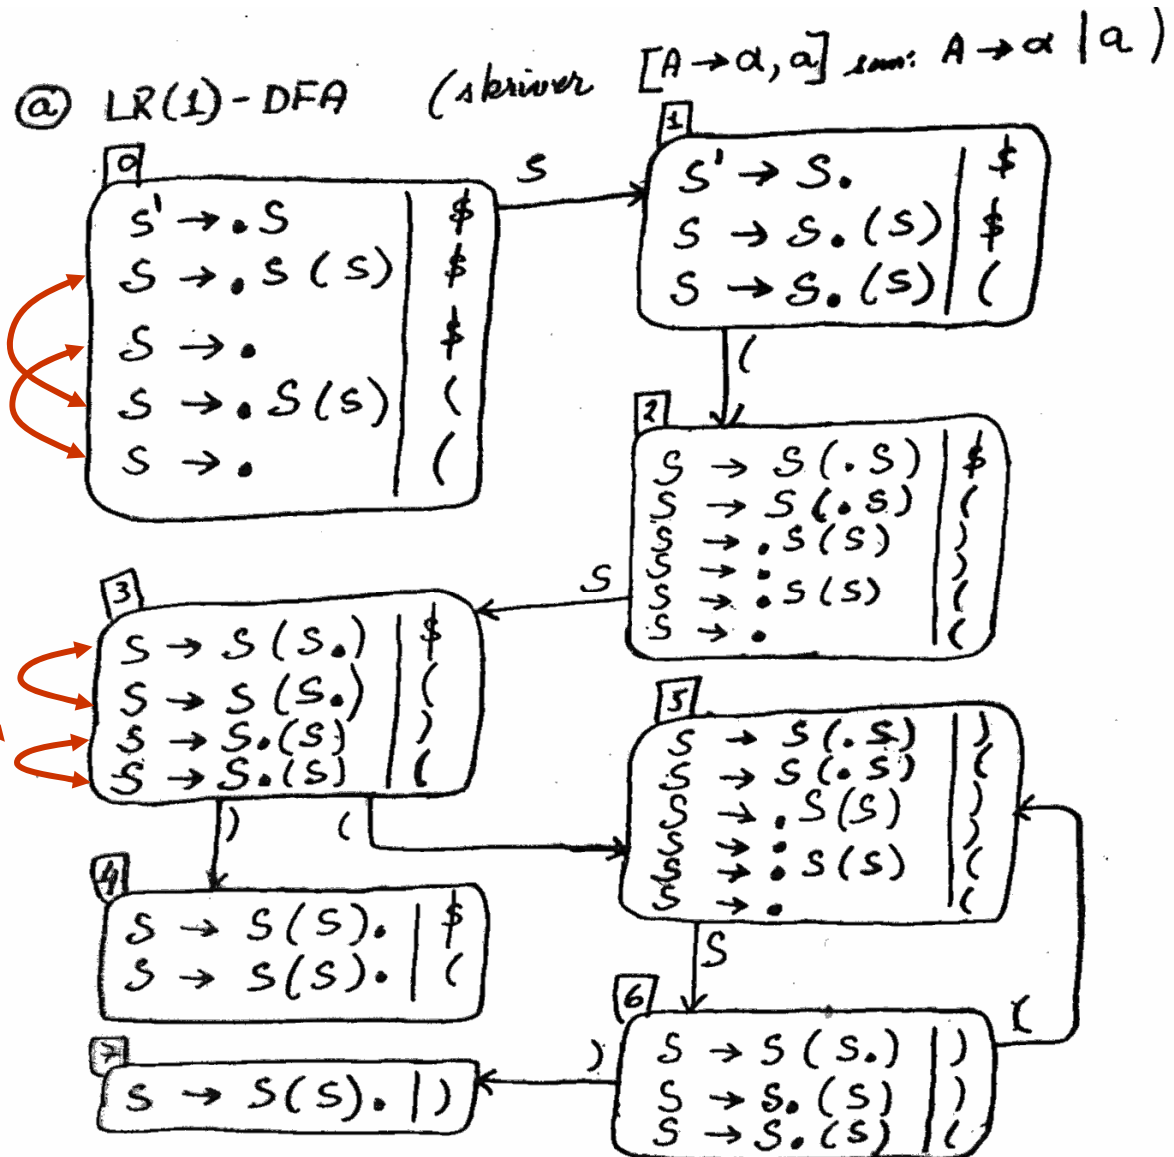 ⓐ LR(1)-DFA (skriver [A → α, a] som: A → α | a )
0
S' → .S | $
S → .S(S) | $
S → . | $
S → .S(S) | (
S → . | (
S
1
S' → S. | $
S → S.(S) | $
S → S.(S) | (
(
2
S → S(.S) | $
S → S(.S) | (
S → .S(S) | )
S → . | )
S → .S(S) | (
S → . | (
S
3
S → S(S.) | $
S → S(S.) | (
S → S.(S) | )
S → S.(S) | (
) (
4
S → S(S). | $
S → S(S). | (
5
S → S(.S) | )
S → S(.S) | (
S → .S(S) | )
S → . | )
S → .S(S) | (
S → . | (
S
6
S → S(S.) | )
S → S.(S) | )
S → S.(S) | (
(
)
7
S → S(S). | )